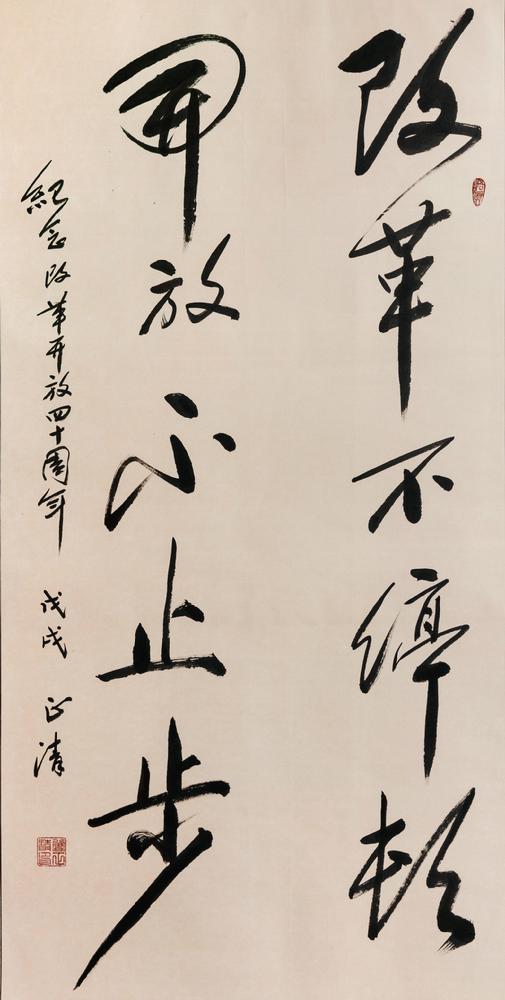 改革不停顿
開放不止步
紀念改革开放四十周年 戊戌 正清